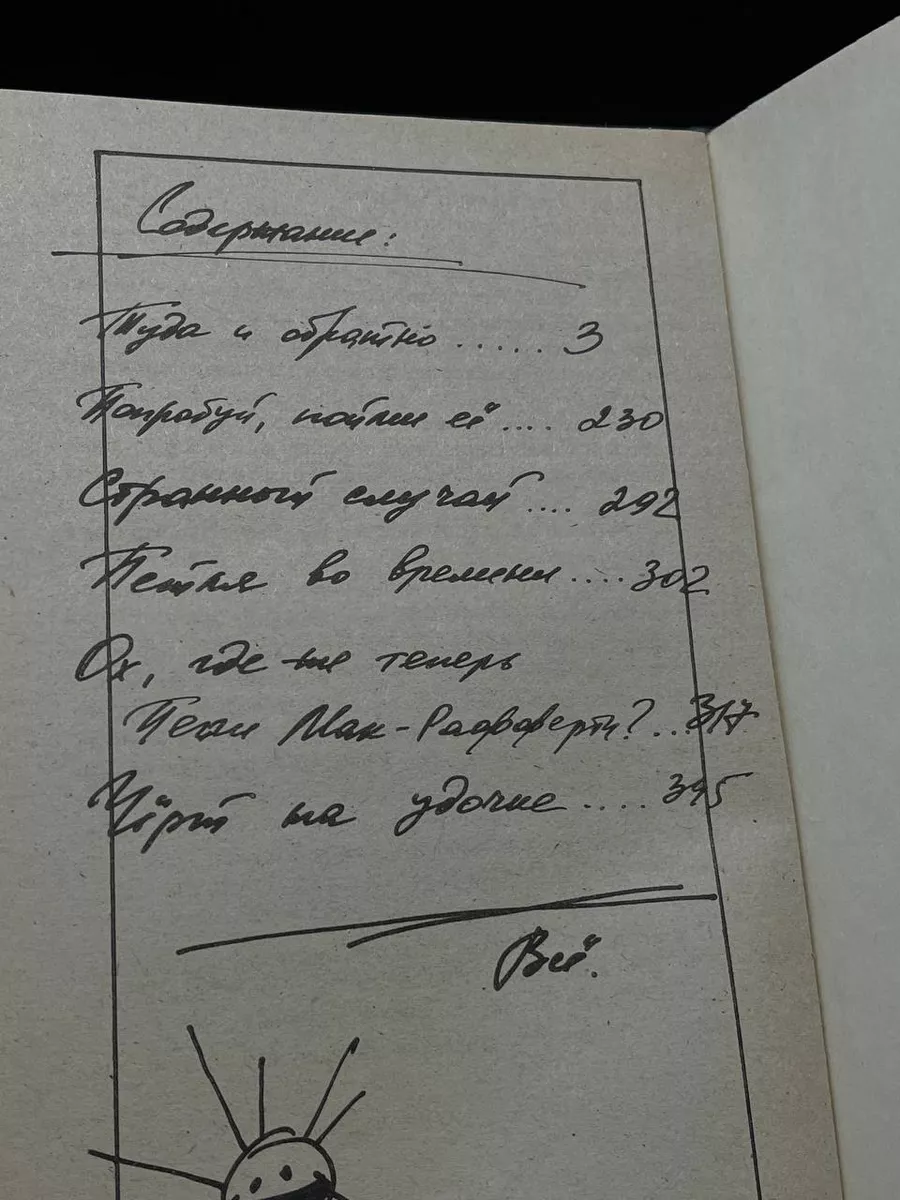 Содержание:
Туда и обратно ...... 3
Попробуй, пойми её .... 230
Странный случай .... 292
Петля во времени .... 302
Ох, где же теперь
Пегги Мак-Рафферти? .. 317
Чёрт на удочке .... 395
Всё.